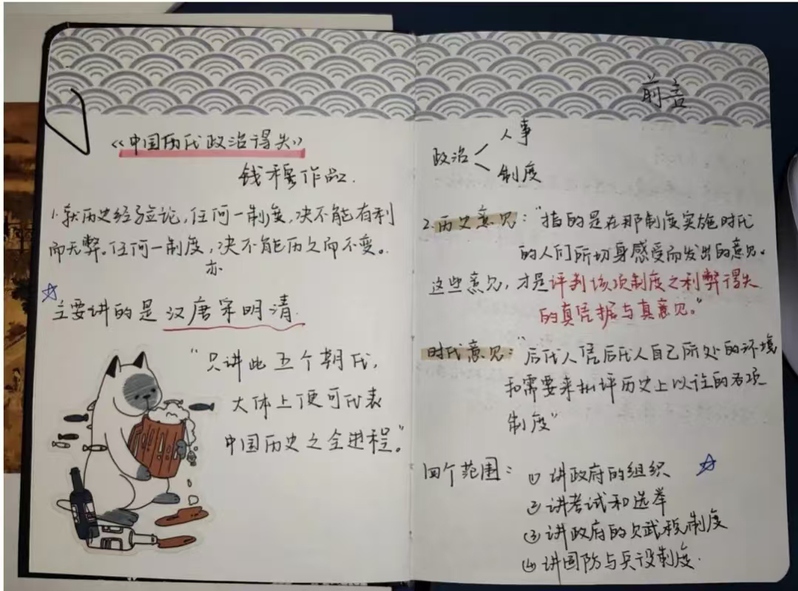 《中国历代政治得失》
钱穆作品.
1.就历史经验论,任何一制度,决不能有利
而无弊。任何一制度,决不能历久而不变。
亦
主要讲的是汉唐宋明清.
"只讲此五个朝代,
大体上便可代表
中国历史之全进程。"
前言
政治 人事
制度
2.历史意见:"指的是在那制度实施时代
的人们所切身感受而发出的意见。
这些意见,才是评判该项制度之利弊得失
的真凭据与真意见。"
时代意见:"后代人凭后代人自己所处的环境
和需要来批评历史上以往的各项
制度"
四个范围:①讲政府的组织
②讲考试和选举
③讲政府的赋税制度
④讲国防与兵役制度.